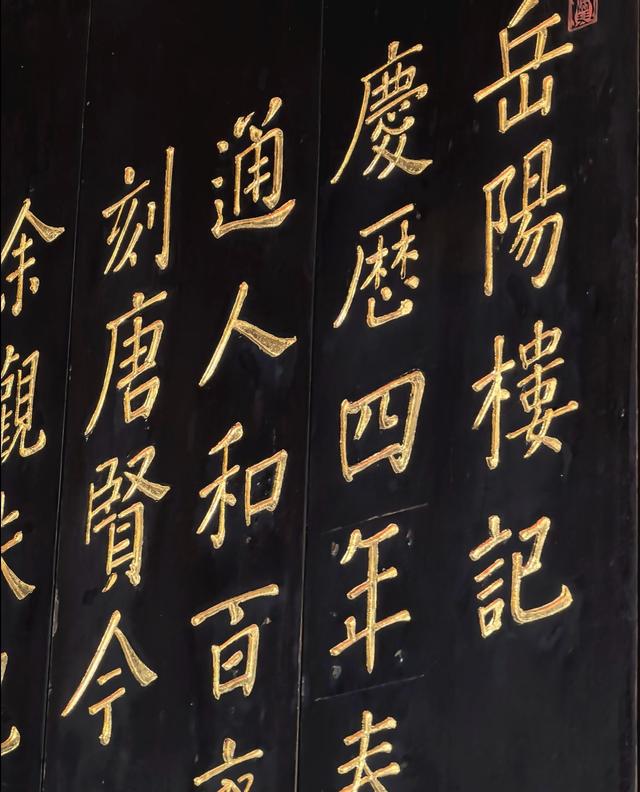 岳陽樓記
慶歷四年春
通人和百
刻唐賢今
余觀夫